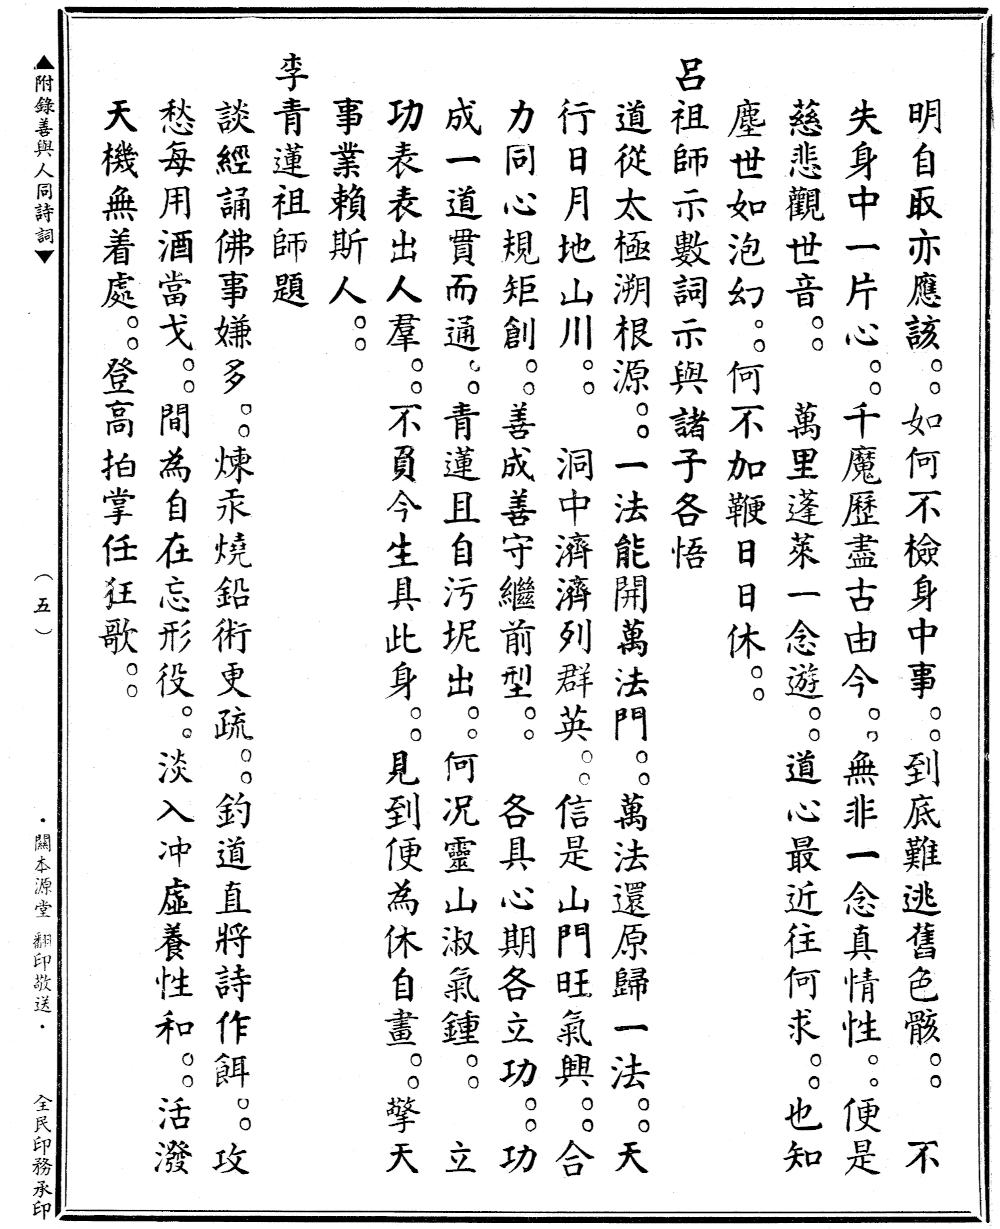 明自取亦應該。。如何不檢身中事。。到底難逃舊色骸。。　不
失身中一片心。。千魔歷盡古由今。。無非一念真情性。。便是
慈悲觀世音。。　萬里蓬萊一念遊。。道心最近往何求。。也知
塵世如泡幻。。何不加鞭日日休。。
呂祖師示數詞示與諸子各悟
道從太極溯根源。。一法能開萬法門。。萬法還原歸一法。。天
行日月地山川。。　洞中濟濟列群英。。信是山門旺氣興。。合
力同心規矩創。。善成善守繼前型。。　各具心期各立功。。功
成一道貫而通。。青蓮且自污坭出。。何况靈山淑氣鍾。。　立
功表表出人羣。。不負今生具此身。。見到便為休自畫。。擎天
事業賴斯人。。
李青蓮祖師題
談經誦佛事嫌多。。煉汞燒鉛術更疏。。釣道直將詩作餌。。攻
愁每用酒當戈。。間為自在忘形役。。淡入冲虛養性和。。活潑
天機無着處。。登高拍掌任狂歌。。
▲附錄善與人同詩詞▼
（五）
·闢本源堂 翻印敬送·
全民印務承印